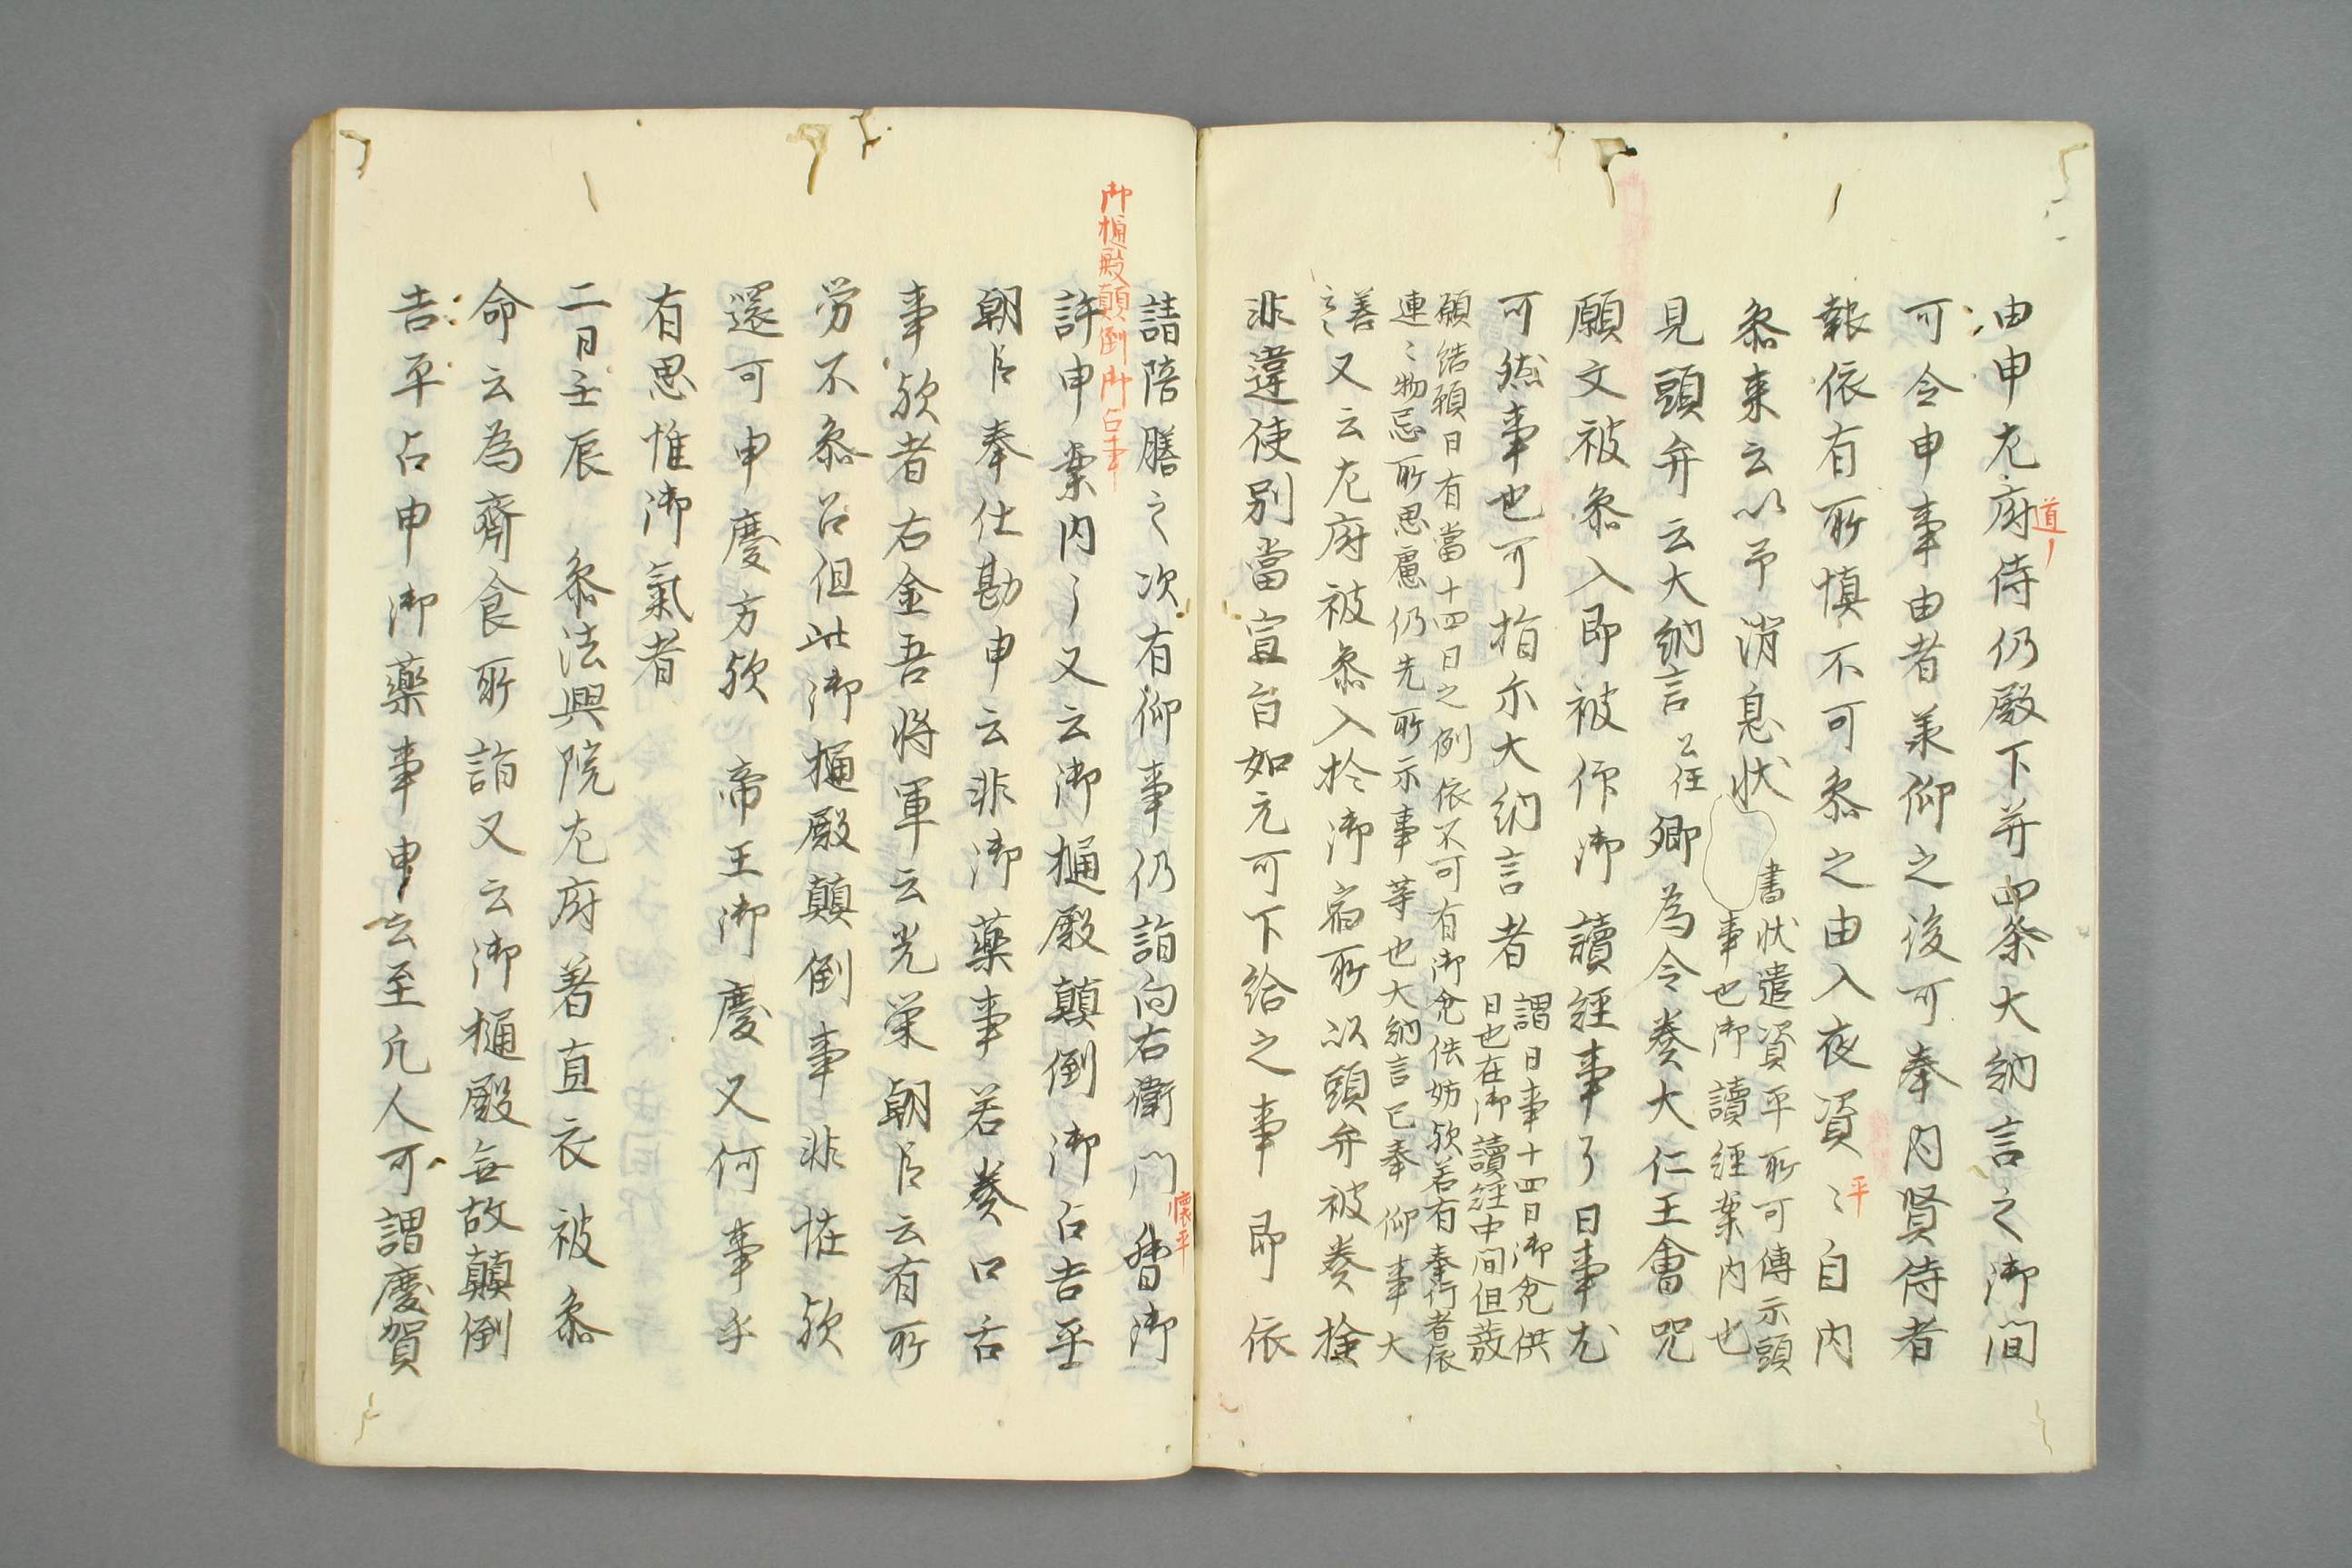 由申左府侍仍殿下并四条大納言之御間
道〻
可令申事由者兼仰之後可奉内賢侍者
報依有所慎不可参之由入夜資〻自内
平
参来云以予消息状
書状遣資平所可傳示頭
事也御讀經案内也
見頭弁云大納言公任卿為令奏大仁王會咒
願文被参入即被作御讀經事了日事尤
可然事也可指示大納言者
謂日事十四日御兊供
日也在御讀経中間但蔉
願結願日有當十四日之例依不可有御兊供妨欤若有奉行者依
連〻物忌所思慮仍先所示事等也大納言已奉仰事大
善〻
又云左府被参入於御宿所以頭弁被奏捡
非違使別當宣旨如元可下給之事即依
御樋殿顛倒御占事
請陪膳之次有仰事仍詣向右衛門督御
懐平
許申案内了又云御樋殿顛倒御占吉平
朝臣奉仕勘申云非御藥事若奏口舌
事欤者右金吾将軍云光栄朝臣云有所
労不参召但此御樋殿顛倒事非恠欤
還可申慶方欤 帝王御慶又何事乎
有思惟御氣者
二日壬辰 参法興院左府著直衣被参
命云為齊食所詣又云御樋殿無故顛倒
吉平占申御藥事申云至凡人可謂慶賀